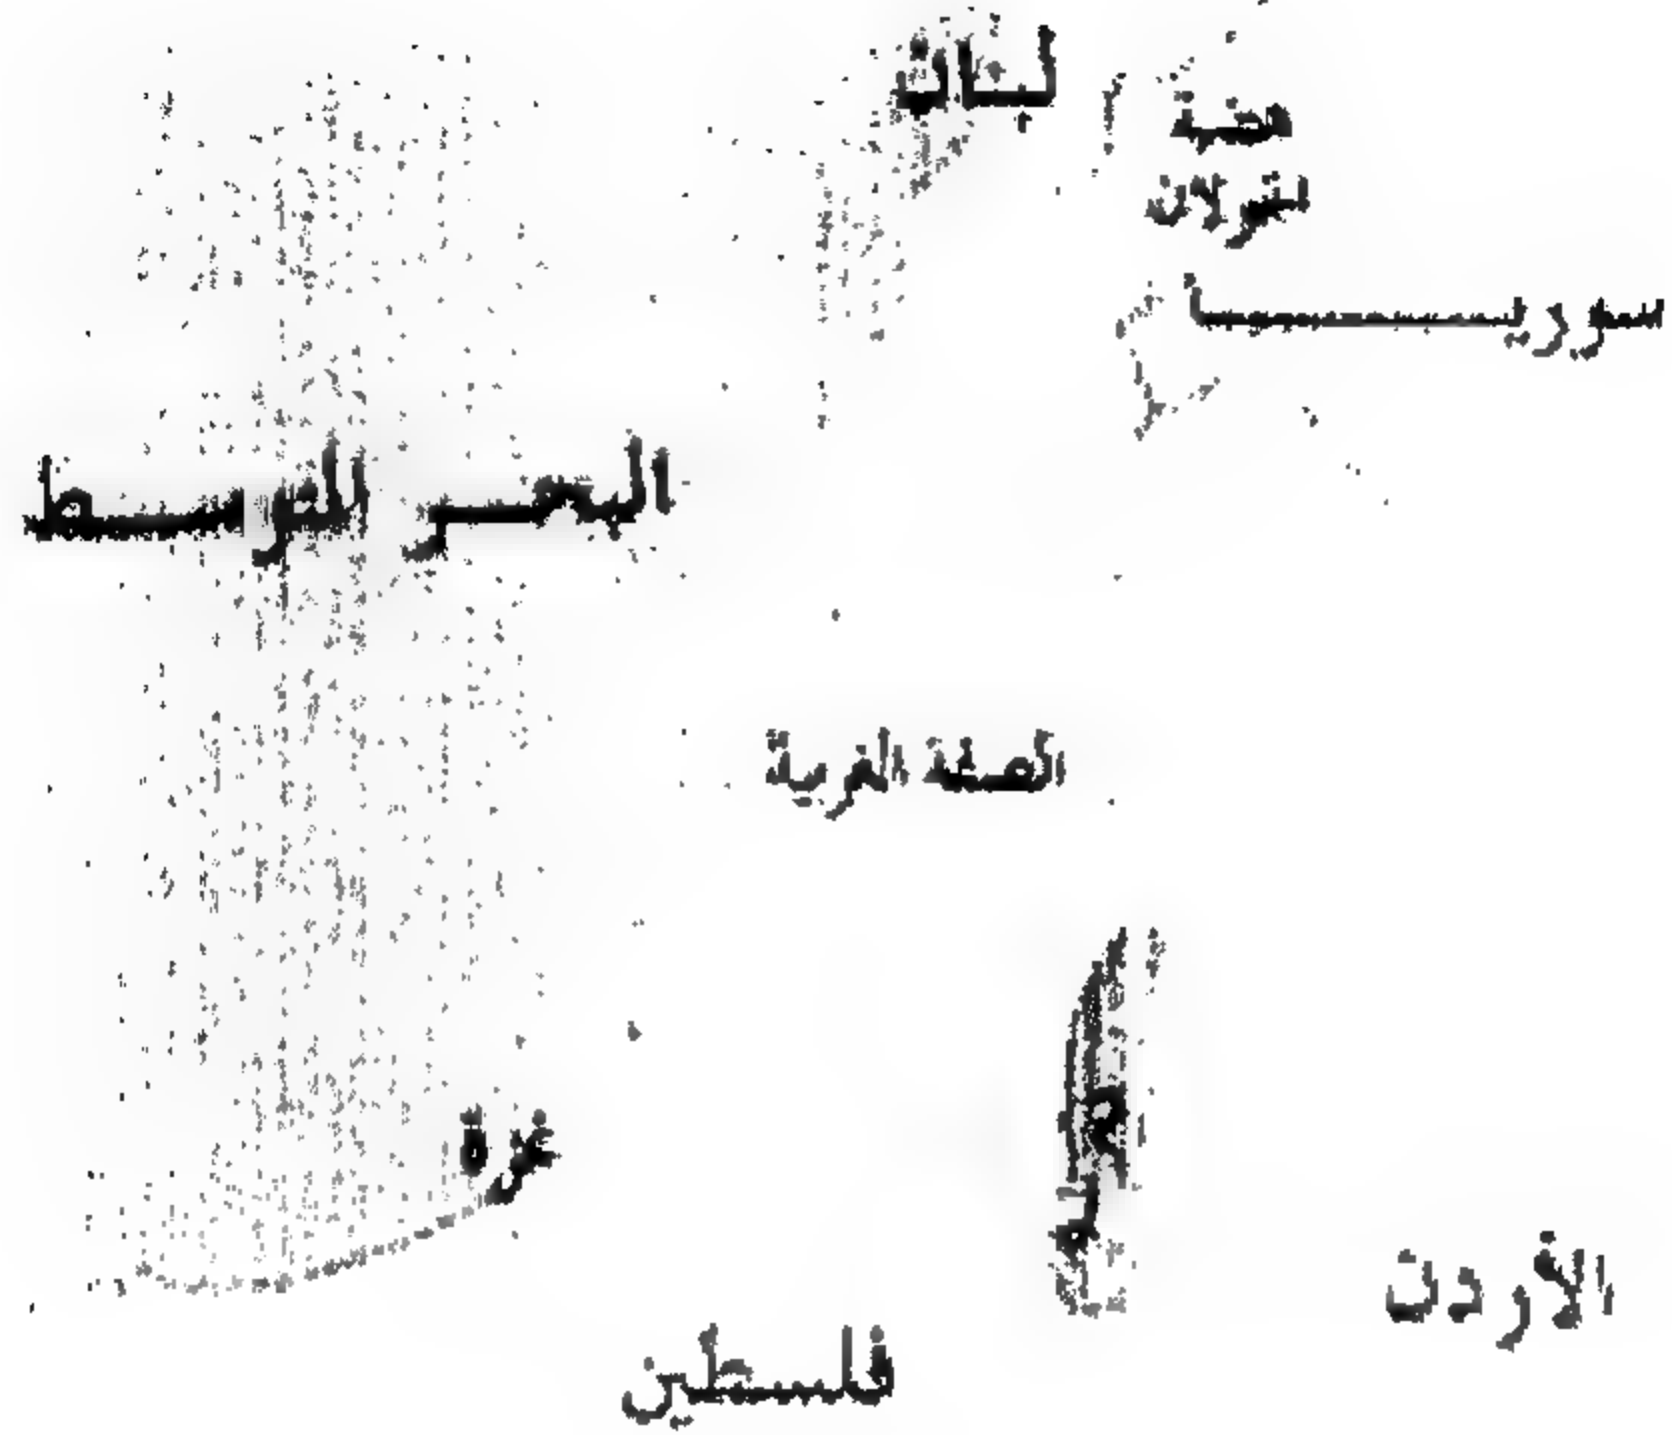 لبنان
هضبة
الجولان
سوريـــــــا
البحـــر المتوســط
الضفة الغربية
غزة
الأردن
فلسطين